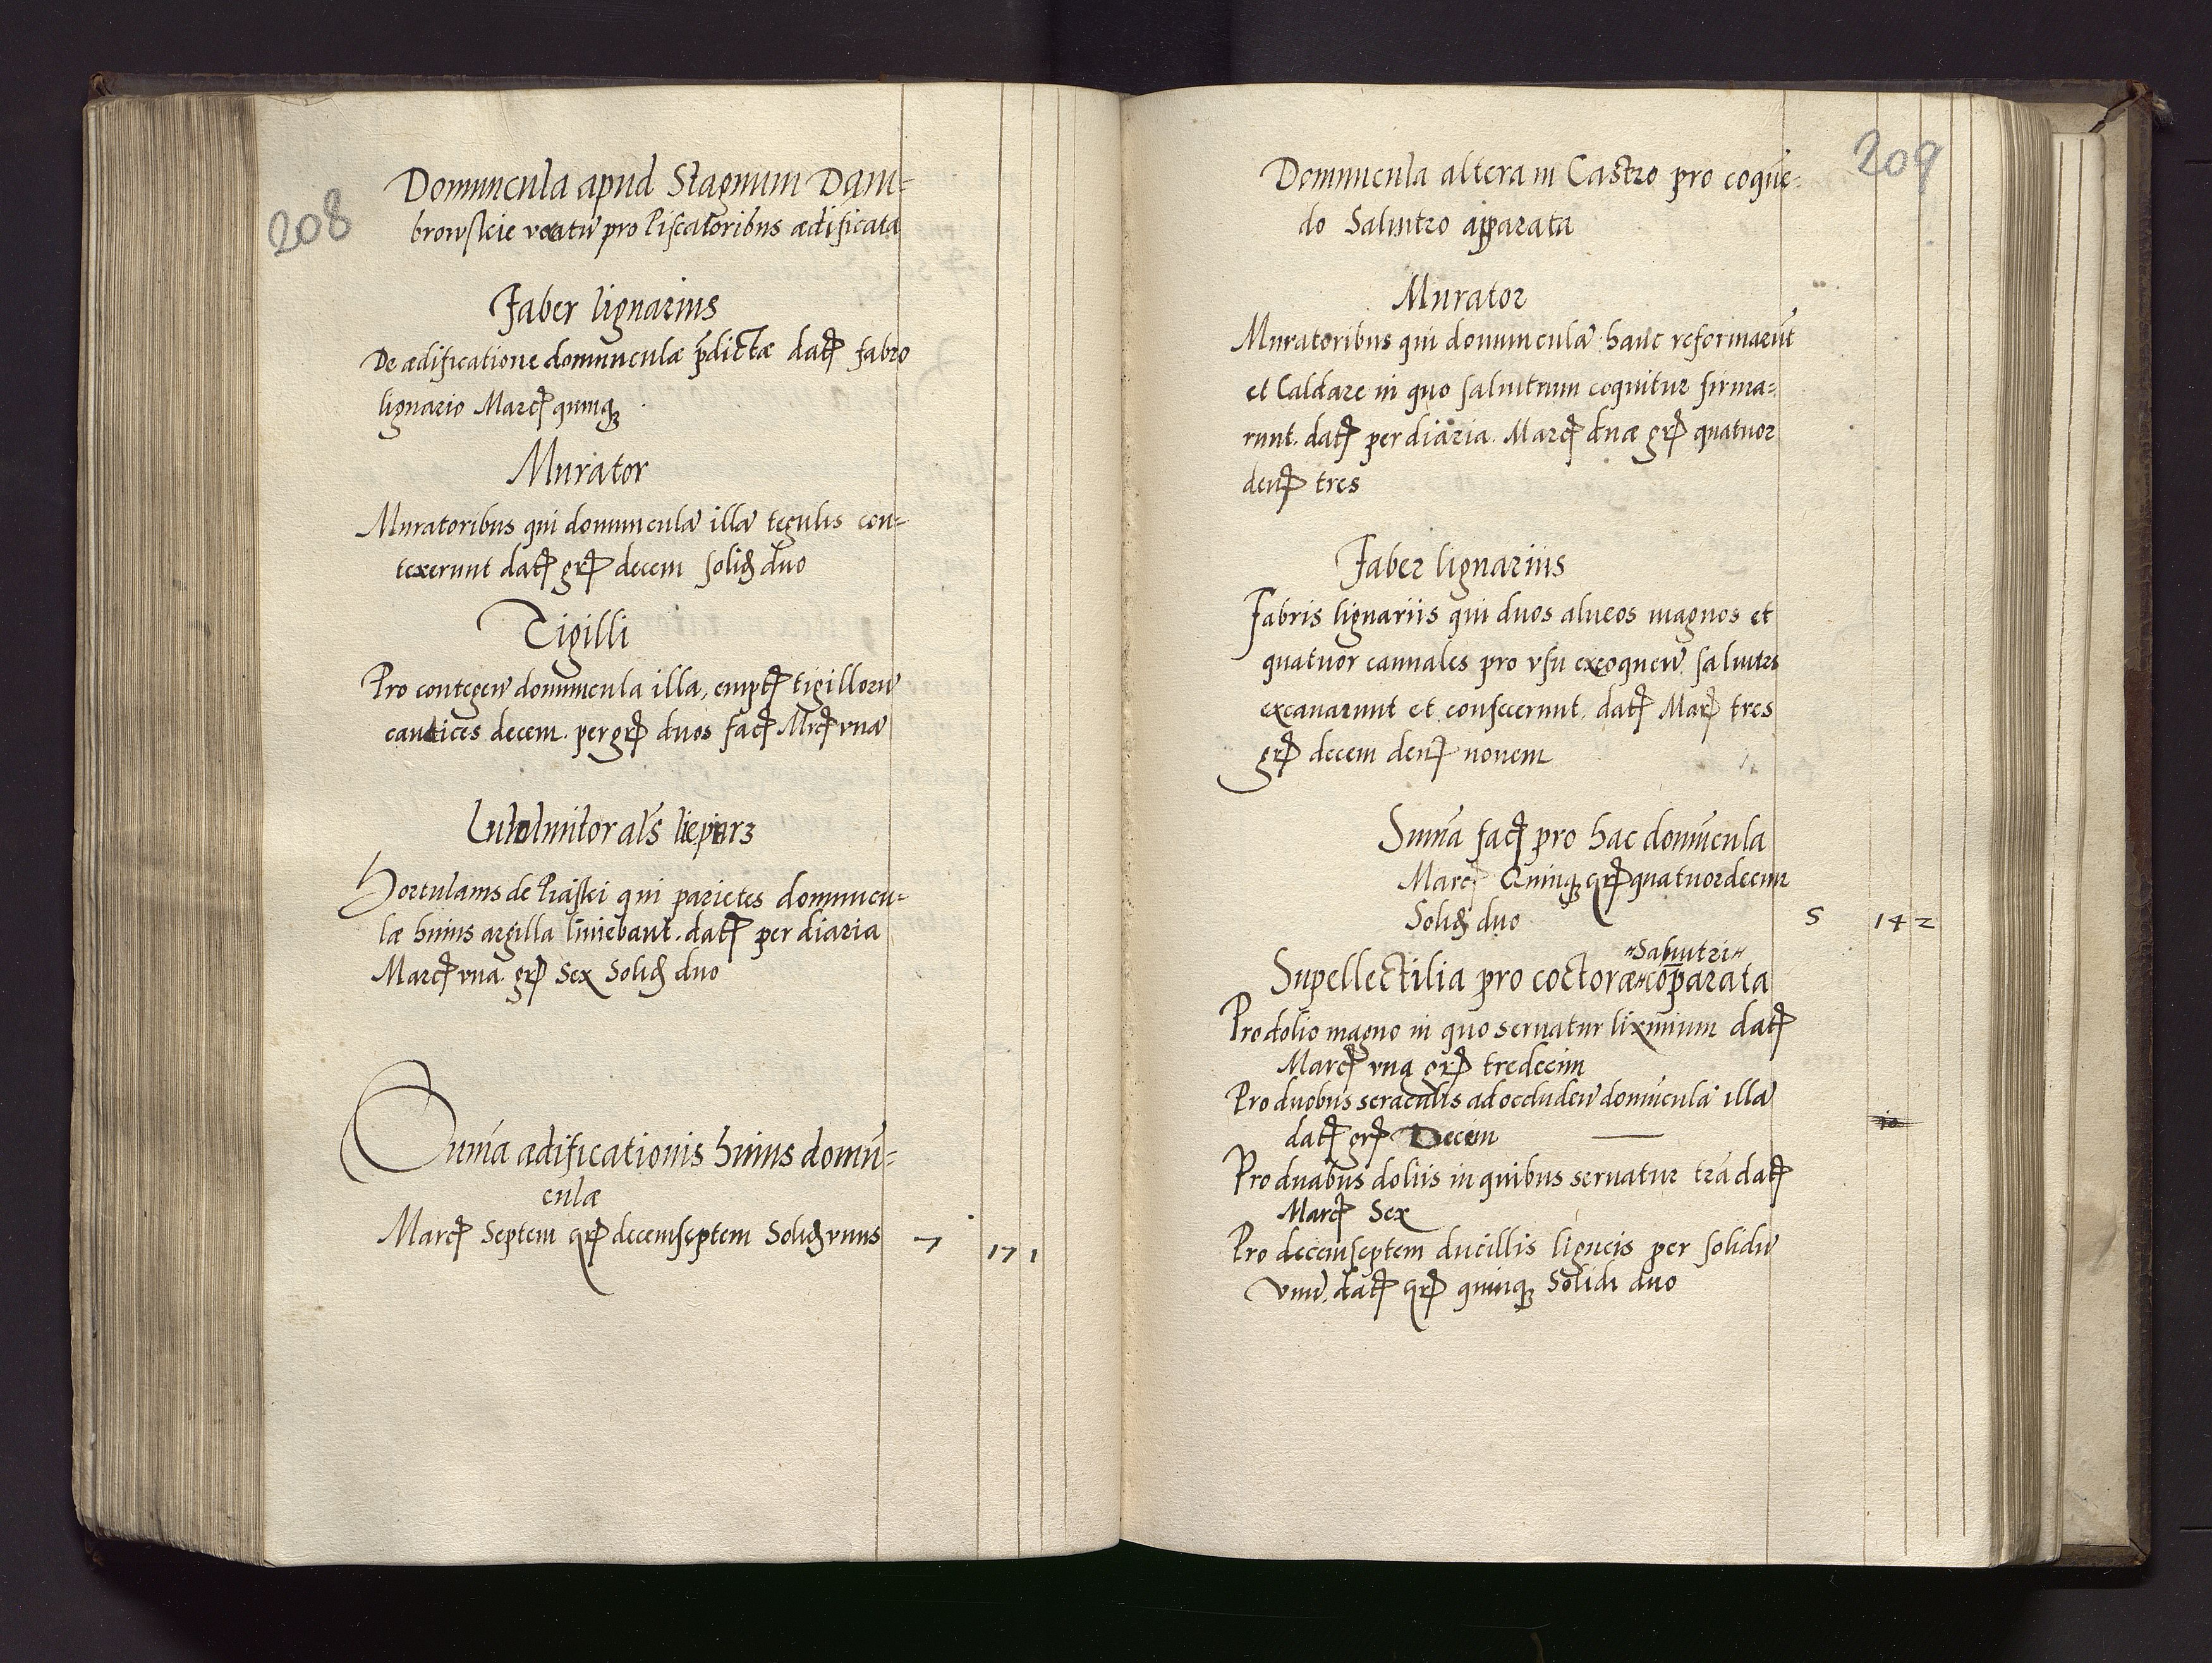 208
Domuncula apud Stagnum Dam-
browskie vocatū pro Piscatoribus ædificata
Faber lignarius
De ædificatione domunculæ p̄dictæ dat͛ fabro
lignario Marc͛ quinq͛
Murator
Muratoribus qui domunculā illā tegulis con-
texerunt dat͛ gr͛ decem solid͛ duo
Tigilli
Pro contegen̄ domuncula illa, empt͛ tigillorū
caudices decem per gr͛ duos fac͛ Mrc͛ vnā
als̄
Hortulanis de Piaski qui parietes domuncu-
læ huius argilla liniebant. dat͛ per diaria
Marc͛ vna gr͛ Sex Solid͛ duo
Sum̄a ædificationis huius domū-
culæ
Marc͛ Septem gr͛ decemseptem Solid͛ vnus 7 17 1
209
Domuncula altera in Castro pro coquē-
do Salnitro apparata
Murator
Muratoribus qui domunculā hanc reformarūt
et Caldare in quo salnitrum coquitur firma-
runt. dat͛ per diaria. Marc͛ duæ gr͛ quatuor
den͛ tres
Faber lignarius
Fabris lignariis qui duos alueos magnos et
quatuor cannales pro vsu excoquen̄ salnitri
excauarunt et confecerunt. dat͛ Mar͛ tres
gr͛ decem den͛ nouem
Sum̄a fac͛ pro hac domūcula
Marc͛ Quinq͛ gr͛ quatuordecim
Solid͛ duo 5 14 2
"Salnitri"
Supellectilia pro coctoræ "cōparata
Pro dolio magno in quo seruatur lixiuium dat͛
Marc͛ vna gr͛ tredecim
Pro duobus seraculis ad occluden̄ domūculā illā
dat͛ gr͛ Decem — 10
Pro duabus doliis in quibus seruatur tr̄a dat͛
Marc͛ Sex
Pro decemseptem ducillis ligneis per solidū
vnū. dat͛ gr͛ quinq͛ Solidi duo